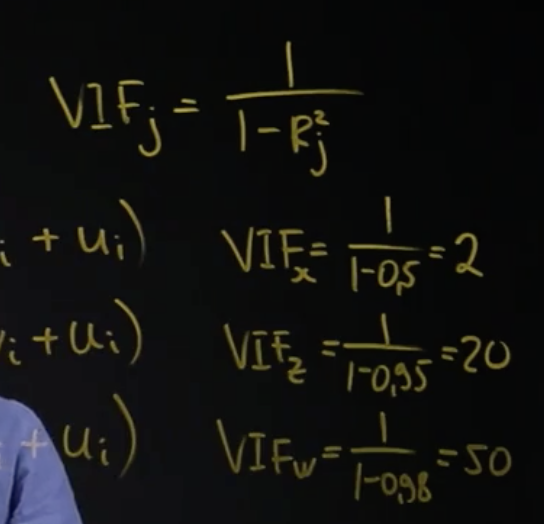 VIF_j = 1 / (1 - R_j^2)
i + u_i) VIF_x = 1 / (1-0,5) = 2
i + u_i) VIF_z = 1 / (1-0,95) = 20
+ u_i) VIF_w = 1 / (1-0,98) = 50